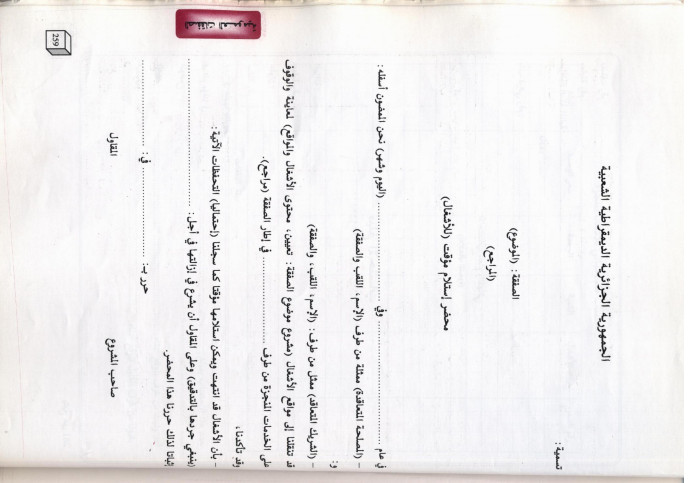 الجمهورية الجزائرية الديمقراطية الشعبية
تسمية :
الصفقة : (الموضوع)
(المراجع)
محضر إستلام مؤقت (للأشغال)
في عام ........................ وفي ........................ (اليوم وشهر) نحن الممضون أسفله :
- (المصلحة المتعاقدة) ممثلة من طرف (الإسم، اللقب والصفقة)
و :
- (الشريك المتعاقد) ممثل من طرف : (الإسم، اللقب، والصفقة)
قد تنقلنا إلى مواقع الأشغال (مشروع موضوع الصفقة : تعيين، محتوى الأشغال والمواقع) لمعاينة والوقوف
على الخدمات المنجزة من طرف ........................ في إطار الصفقة (مراجع).
وقد تأكدنا،
- بأن الأشغال قد انتهت ويمكن استلامها مؤقتا كما سجلنا (إحتماليا) التحفظات الآتية :
(ينبغي جردها بالتدقيق) وعلى المقاول أن يشرع في إزالتها في أجل : ........................
إثباتا لذلك حررنا هذا المحضر.
حرر بـ: ........................ في : ........................
صاحب المشروع
المقاول
الصفقات العمومية
259